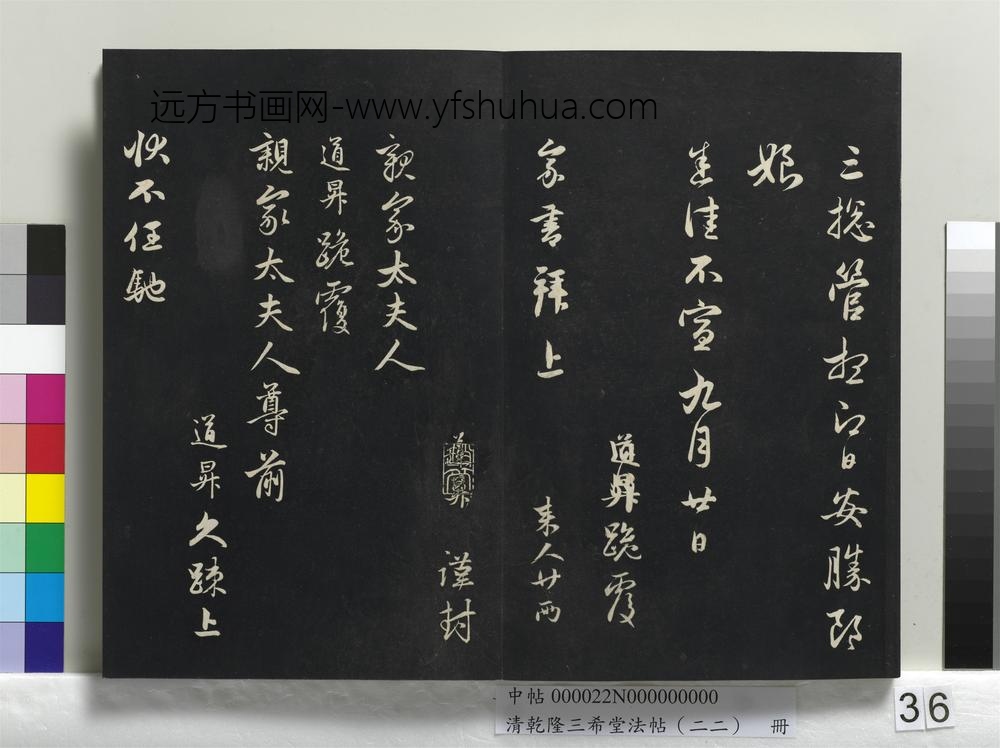 远方书画网-www.yfshuhua.com
三總管想即日安勝郎
娘
悉佳不宣九月廿日
道昇跪覆
家書拜上
來人廿両
謹封
親家太夫人
道昇跪覆
親家太夫人尊前
道昇久疎上
狀不任馳
中帖 000022N000000000
清乾隆三希堂法帖（二二） 冊
36